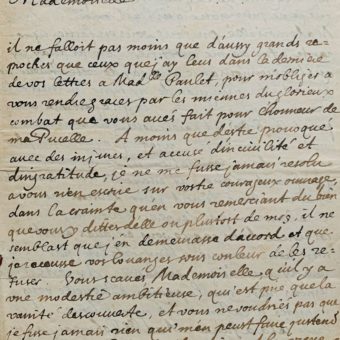 Mademoiselle
il ne falloit pas moins que d'aussy grands re-
proches que ceux que j'ay leus dans la derniere
de vos lettres a Mad.lle Paulet, pour m'obliger a
vous rendre graces par les miennes du glorieux
combat que vous avés fait pour l'honneur de
ma Pucelle. A moins que d'estre provoqué
avec des injures, et accusé d'incivilité et
d'ingratitude, je ne me fusse jamais resolu
a vous rien escrire sur vostre courageux ouvrage
dans la crainte qu'en vous remerciant du bien
que vous y dittes d'elle ou plustost de moy, il ne
semblast que j'en demeurasse d'acord et que
j'avouasse vos louanges sous couleur de les re-
fuser. Vous scaves, Mademoiselle, qu'il y a
une modestie ambitieuse, qui est pire que la
vanité descouverte, et vous ne voudriés pas que
je fisse jamais rien qui m'en peust faire